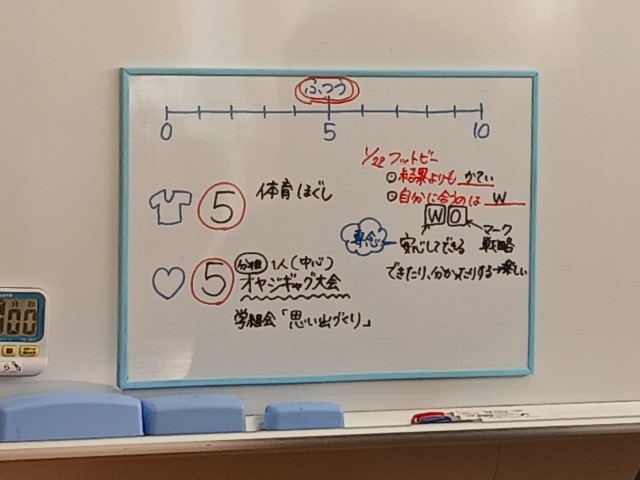 ふつう
0 5 10
5 体育ほぐし
5 分担 1人(中心)
オヤジギャグ大会
学級会「思い出づくり」
1/22 フットビー
⊙結果よりも かてい
⊙自分に合うのは W
W O
専念 安心してできる
マーク
戦略
できたり、分かったりする→楽しい
00
分 秒